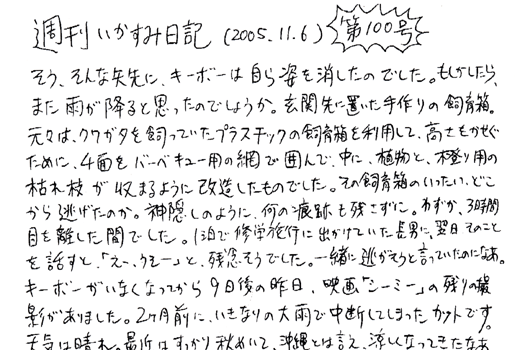 週刊いかすみ日記 (2005.11.6) 第100号
そう、そんな矢先に、キーボーは自ら姿を消したのでした。もしかしたら、
また雨が降ると思ったのでしょうか。玄関先に置いた手作りの飼育箱。
元々は、クワガタを飼っていたプラスチックの飼育箱を利用して、高さをかせぐ
ために、4面をバーベキュー用の網で囲んで、中に、植物と、登り用の
枯れ枝が収まるように改造したものでした。その飼育箱のいったい、どこ
から逃げたのか。神隠しのように、何の痕跡も残さずに。わずか、3時間
目を離した間でした。1泊で修学旅行に出かけていた長男に、翌日そのこと
を話すと、「えー、うそー」と、残念そうでした。一緒に逃がそうと言っていたのになあ。
キーボーがいなくなってから9日後の昨日、映画「シーミー」の残りの撮
影がありました。2ヶ月前に、いきなりの大雨で中断してしまったカットです。
天気は晴れ。最近はすっかり秋めいて、沖縄とは言え、涼しくなってきたなあ